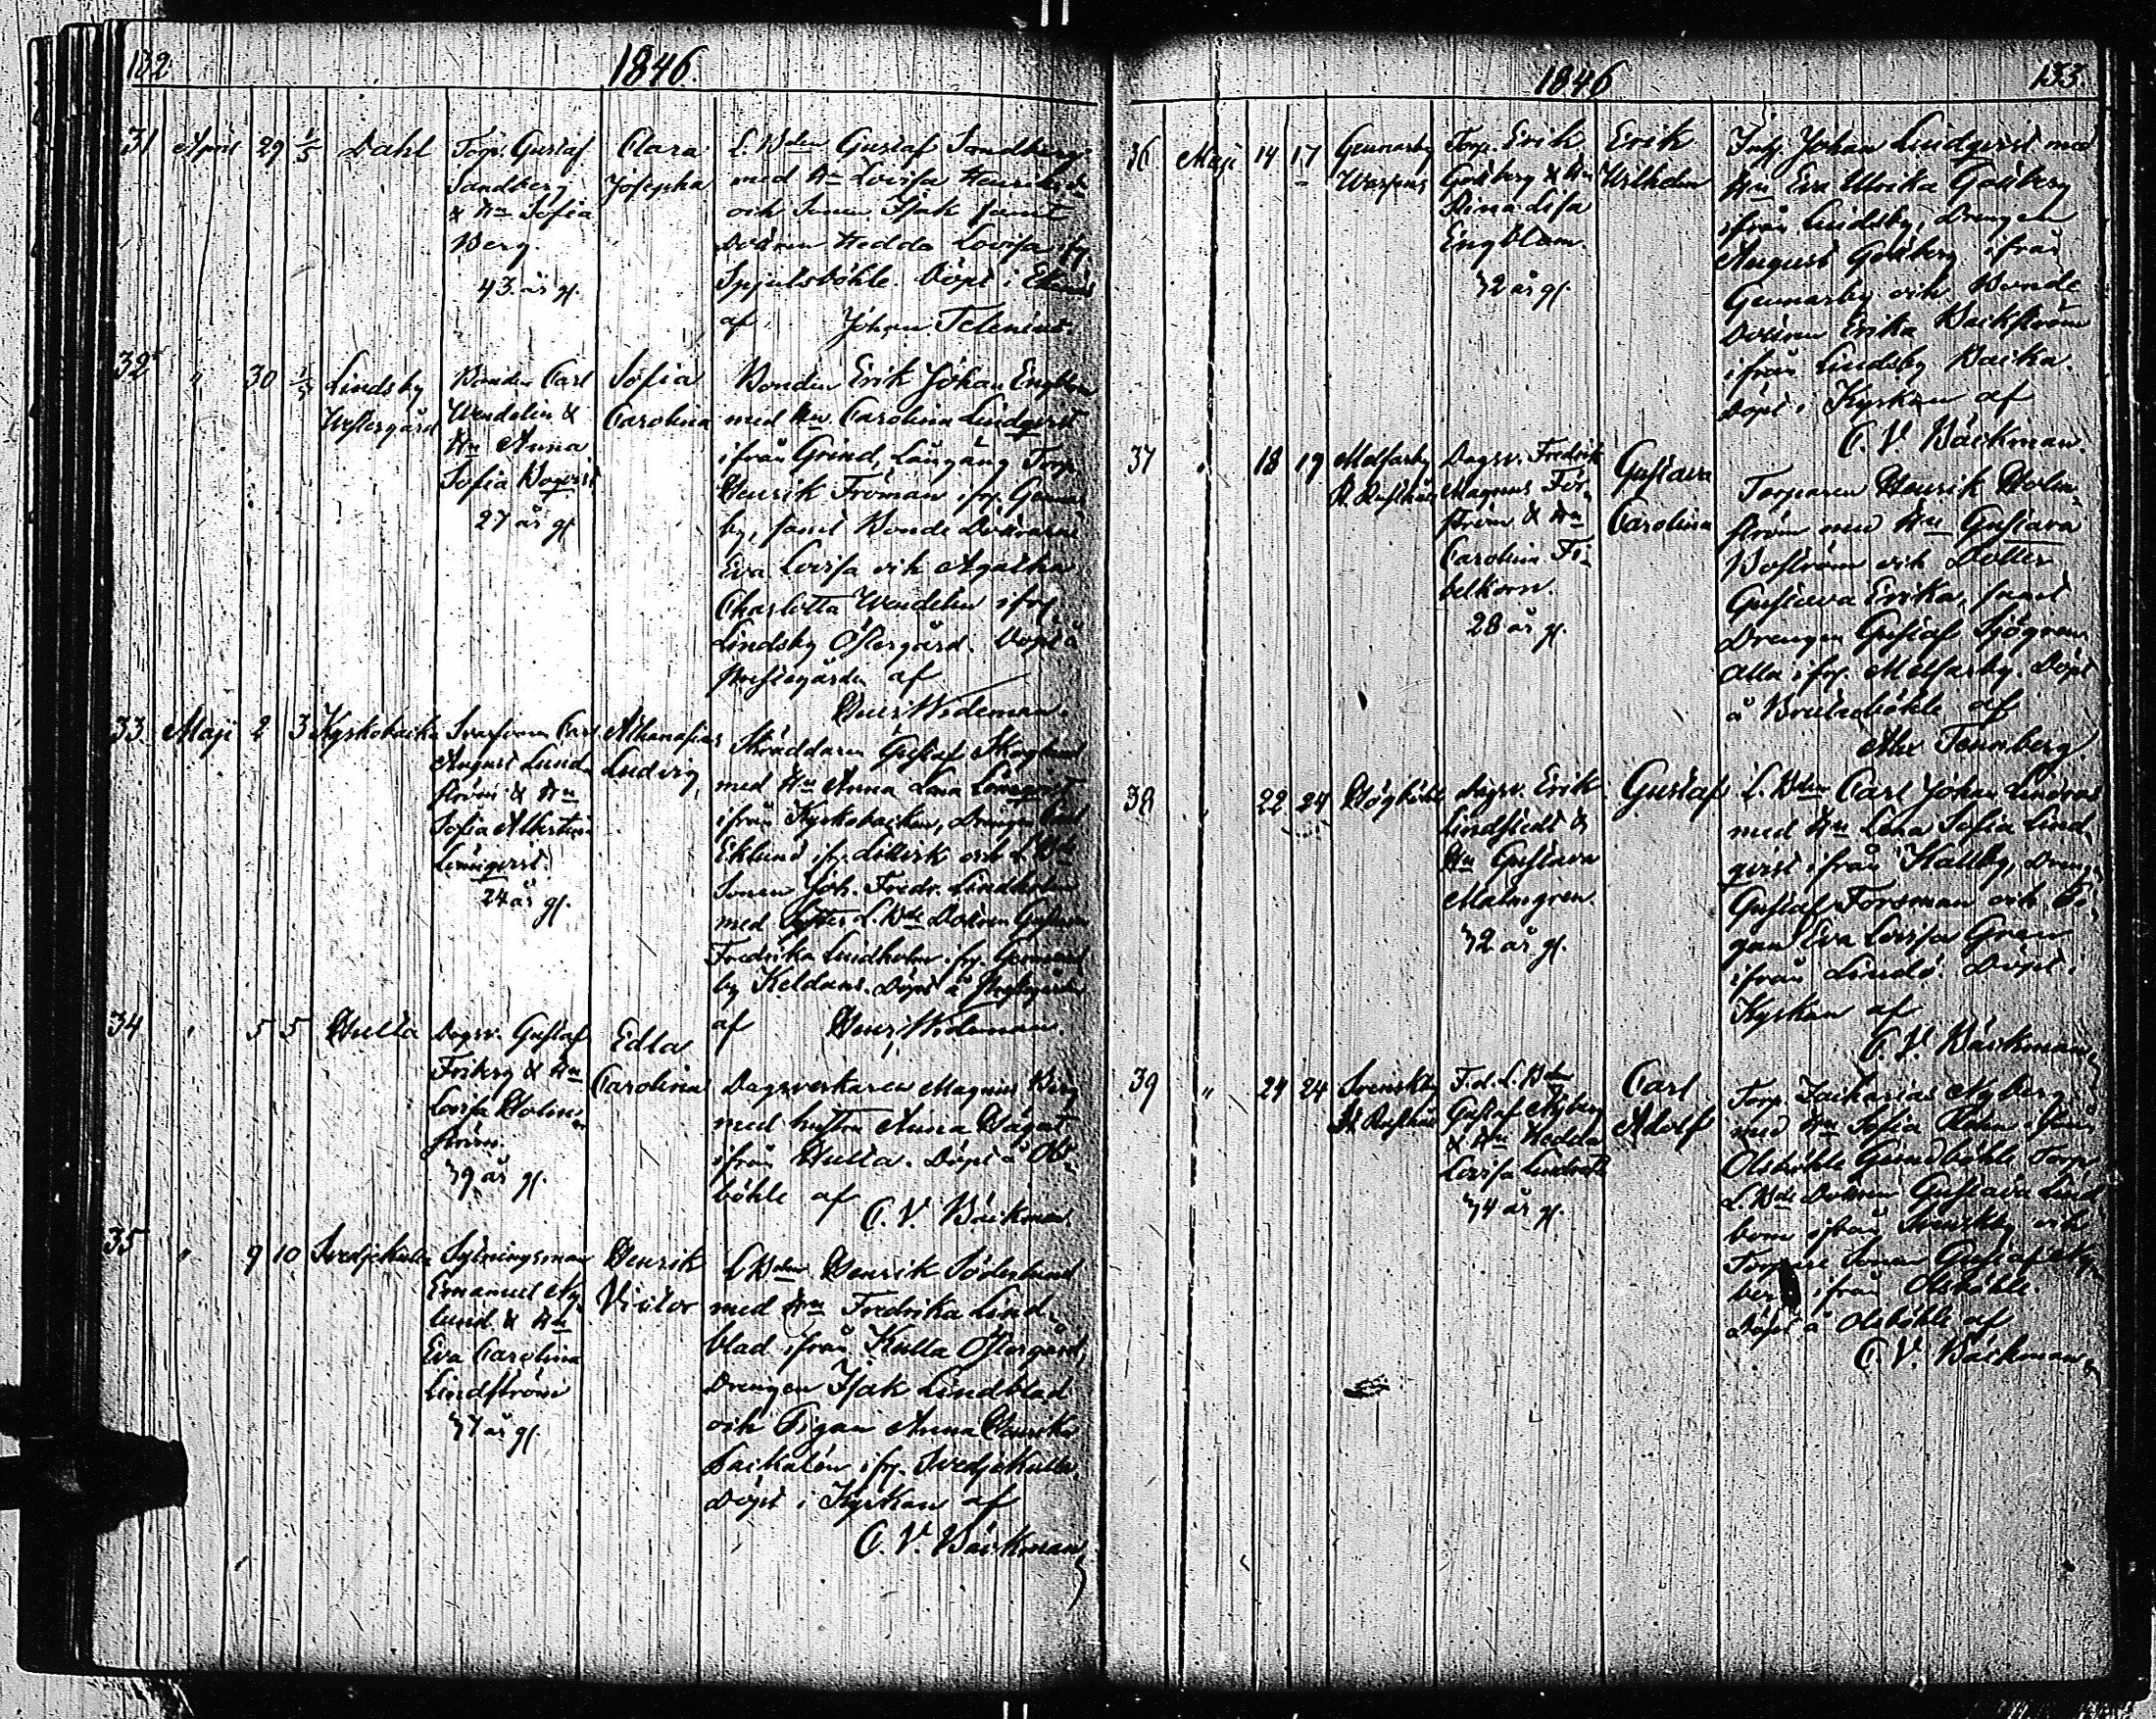 132
1846.
31 April 29 1/5 Dahl
Torp. Gustaf
Sandberg
& Hu Sofia
Berg.
43 år gl.
Clara
Josepha
L. Bden Gustaf Sandberg
med Hu Lovisa
och Sonen Isak samt
Dottren Hedda Lovisa ifr.
Spjutsböhle. Döpt i Ekenäs
af Johan Telenius.
32 " 30 1/5 Lindsby
Westergård
Bonden Carl
Wendelin &
Hu Anna
Sofia Boqvist
27 år gl.
Sofia
Carolina
Bonden Erik Johan Engblom
med Hu Carolina Lindqvist
ifrån Grind, Långäng Torp.
Henrik Fröman ifr. Gennas
by, samt Bonde Döttrarne
Eva Lovisa och Agatha
Charlotta Wendelin ifr.
Lindsby Östergård. Döpt å
Prestegården af
Henr. Wideman.
33 Maji 2 3 Kyrkobacka
Svarfvaren Carl
August Lund
ström & Hu
Sofia Albertina
Lönnqvist.
24 år gl.
Athanasius
Ludvig
Skräddaren Gustaf Skoglund
med Hu Anna Lena Lönnqvist
ifrån Kyrkobacken, Drengen Carl
Eklund ifr. och L. Bde
Sonen Joh. Fredr. Lindholm
med Syster L. Bde Dottren Gustava
Fredrika Lindholm ifr. Gennas
by Keldans. Döpt å Prestgården
af Henr. Wideman.
34 " 5 5 Hulta
Dagsv. Gustaf
Friberg & Hu
Lovisa Holm
ström.
39 år gl.
Edla
Carolina
Dagsverkaren Magnus Berg
med hustru Anna Wågat
ifrån Hulta. Döpt å Ols
böhle af
C. V. Bäckman.
35 " 9 10 Svedjekulla
Sytningsman
Emanuel Ny
lund & Hu
Eva Carolina
Lindström
37 år gl.
Henrik
Victor
L Bden Henrik Söderlund
med Hu Fredrika Lind
blad ifrån Kulla Östergård,
Drengen Isak Lindblad
och Pigan Anna Henrika
Backalén ifr. Svedjekulla,
döpt i Kyrkan af
C. V. Bäckman
1846
133.
36 Maji 14 17 Gennarby
Torp. Erik
Gottberg & Hu
Stina Lisa
Engblom.
32 år gl.
Erik
Wilhelm
Inh. Johan Lindqvist med
Hu Eva Ulrika Gottberg
ifrån Lindsby, Drengen
August Gottberg ifrån
Gennarby och Bonde
Dottren Erika Backström
ifrån Lindsby Backa.
Döpt i Kyrkan af
C. V. Bäckman.
37 " 18 19 Molfarby
St. Rusthåll
Dagsv. Fredrik
Magnus For-
ström & Hu
Carolina Fi-
belkorn.
28 år gl.
Gustava
Carolina
Torparen Henrik Holm-
ström med Hu Gustava
Boström och Dotter
Gustava Erika, samt
Drengen Gustaf Sjögren
alla ifr. Molfarby. Döpt
å Brutuböhle af
Alex Tennberg
38 " 22 24 Högböhle
Dagsv. Erik
Lindstedt &
Hu Gustava
Malmgren.
32 år gl.
Gustaf
L. Bden Carl Johan Lindroos
med Hu Lena Sofia Lind-
qvist ifrån Kallby, Dreng
Gustaf Forsman och Pi-
gan Eva Lovisa Gran
ifrån Lindö. Döpt i
Kyrkan af
C. V. Bäckman,
39 " 24 24 Svenskby
St. Rusthåll
F.d. L. Bden
Gustaf Nyberg
& Hu Hedda
Lovisa
34 år gl.
Carl
Adolf
Torp. Zacharias Nyberg
med Hu Sofia ifrån
Olsböhle Torp.
L. Bde Dottren Gustava Lind
bom ifrån Svenskby och
Torpare Sonen Gustaf Ny
berg ifrån Olsböhle.
döpt å Olsböhle af
C. V. Bäckman